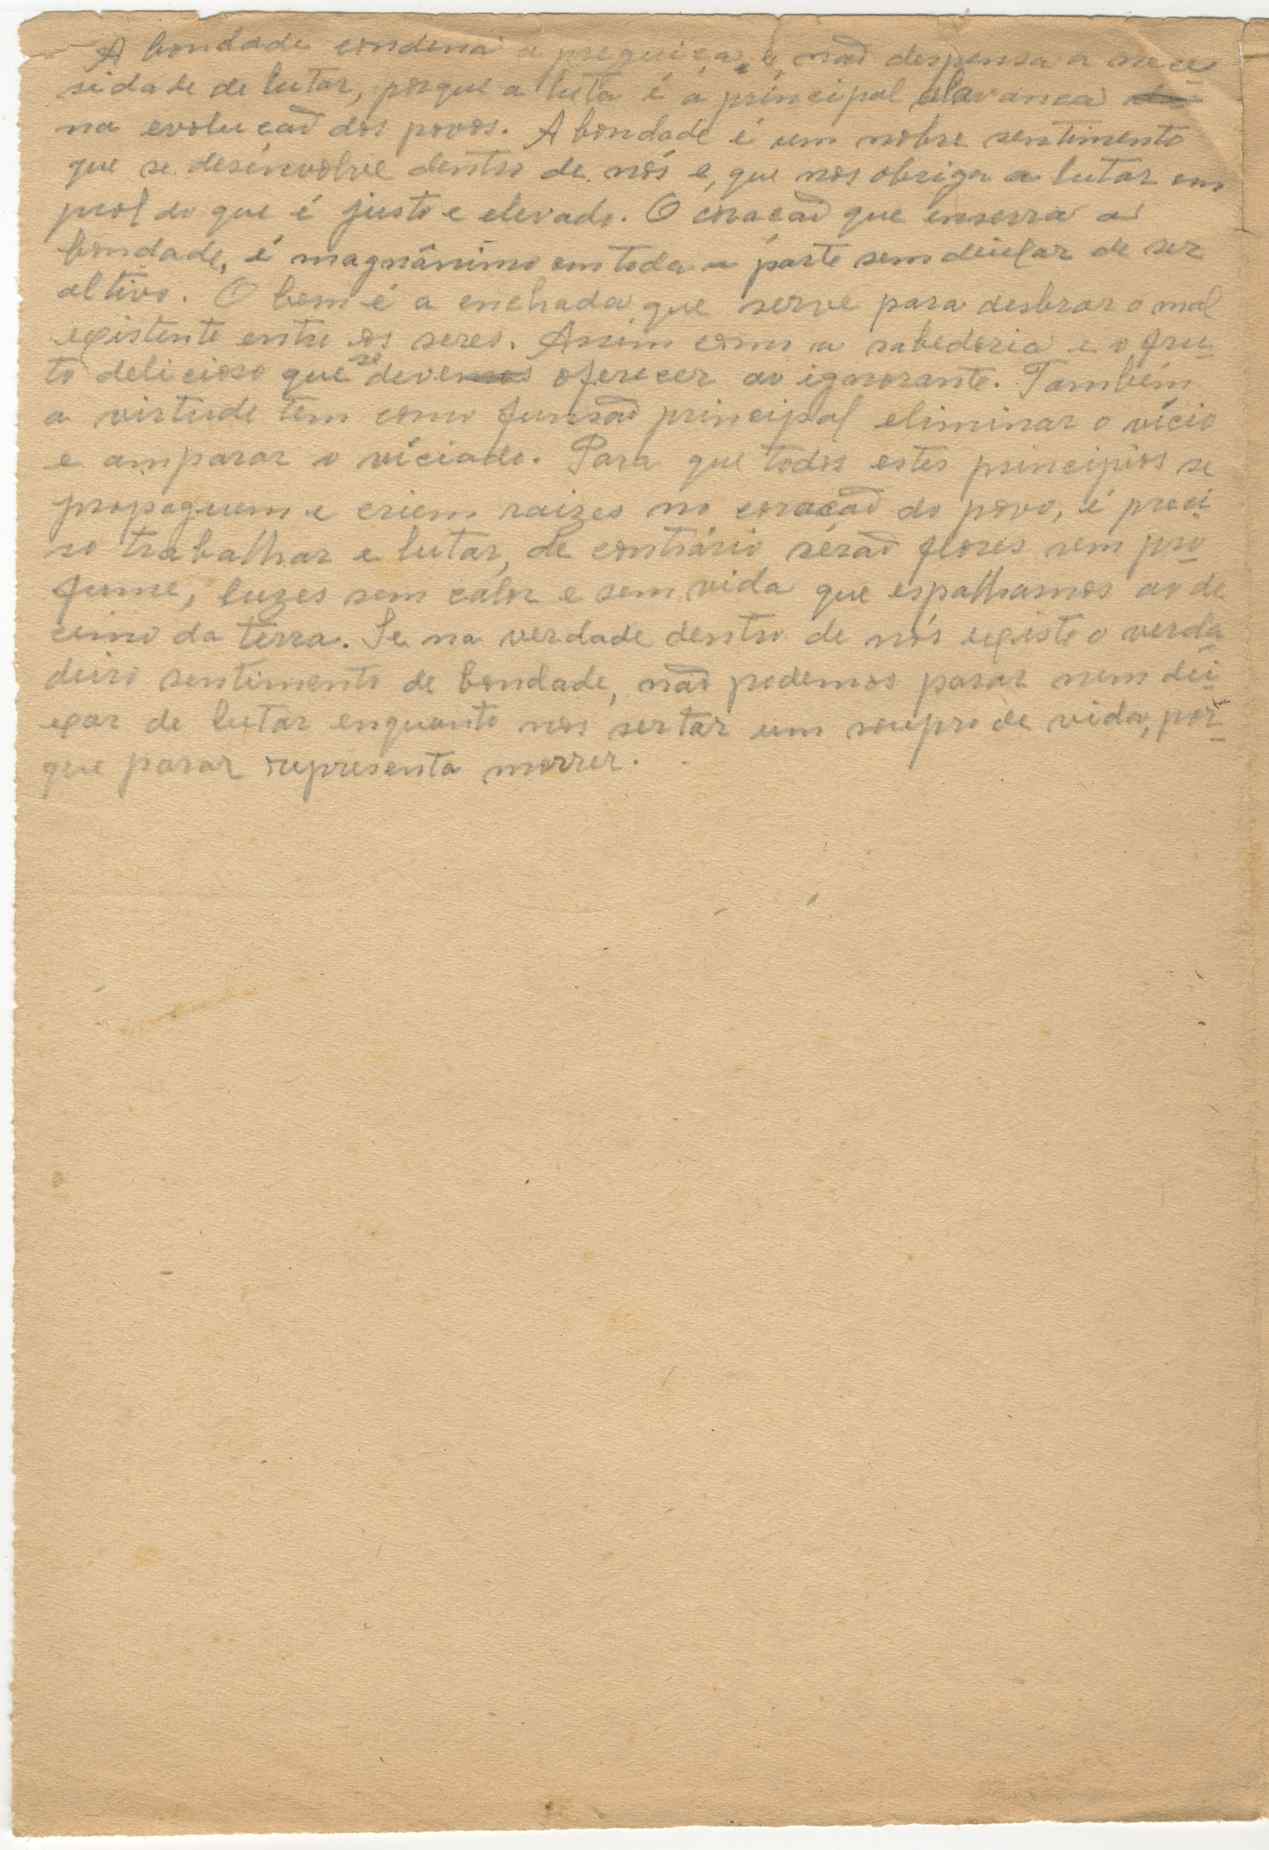 A bondade condena a preguiça, e não despensa a nece
sidade de lutar, porque a luta é a principal alavanca
na evolucão dos povos. A bondade é um nobre sentimento
que se desinvolve dentro de nós e, que nos obriga a lutar em
prol do que é justo e elevado. O coracão que enserra a
bondade, é magnânimo em toda a parte sem deixar de ser
altivo. O bem é a enchada que serve para desbrar o mal
existente entre os seres. Assim como a sabedoria e o fru-
to delicioso que se deve oferecer ao ignorante. Também
a virtude tem como funsão principal eliminar o vício
e amparar o viciado. Para que todos estes principios se
propaguem e criem raizes no coracão do povo, é preci-
so trabalhar e lutar, de contrário serão flores sem pro-
fume, luzes sem calor e sem vida que espalhamos ao de
cimo da terra. Se na verdade dentro de nós existe o verda-
deiro sentimento de bondade, não podemos parar nem dei-
xar de lutar enquanto nos sertar um soupro de vida, por-
que parar representa morrer.